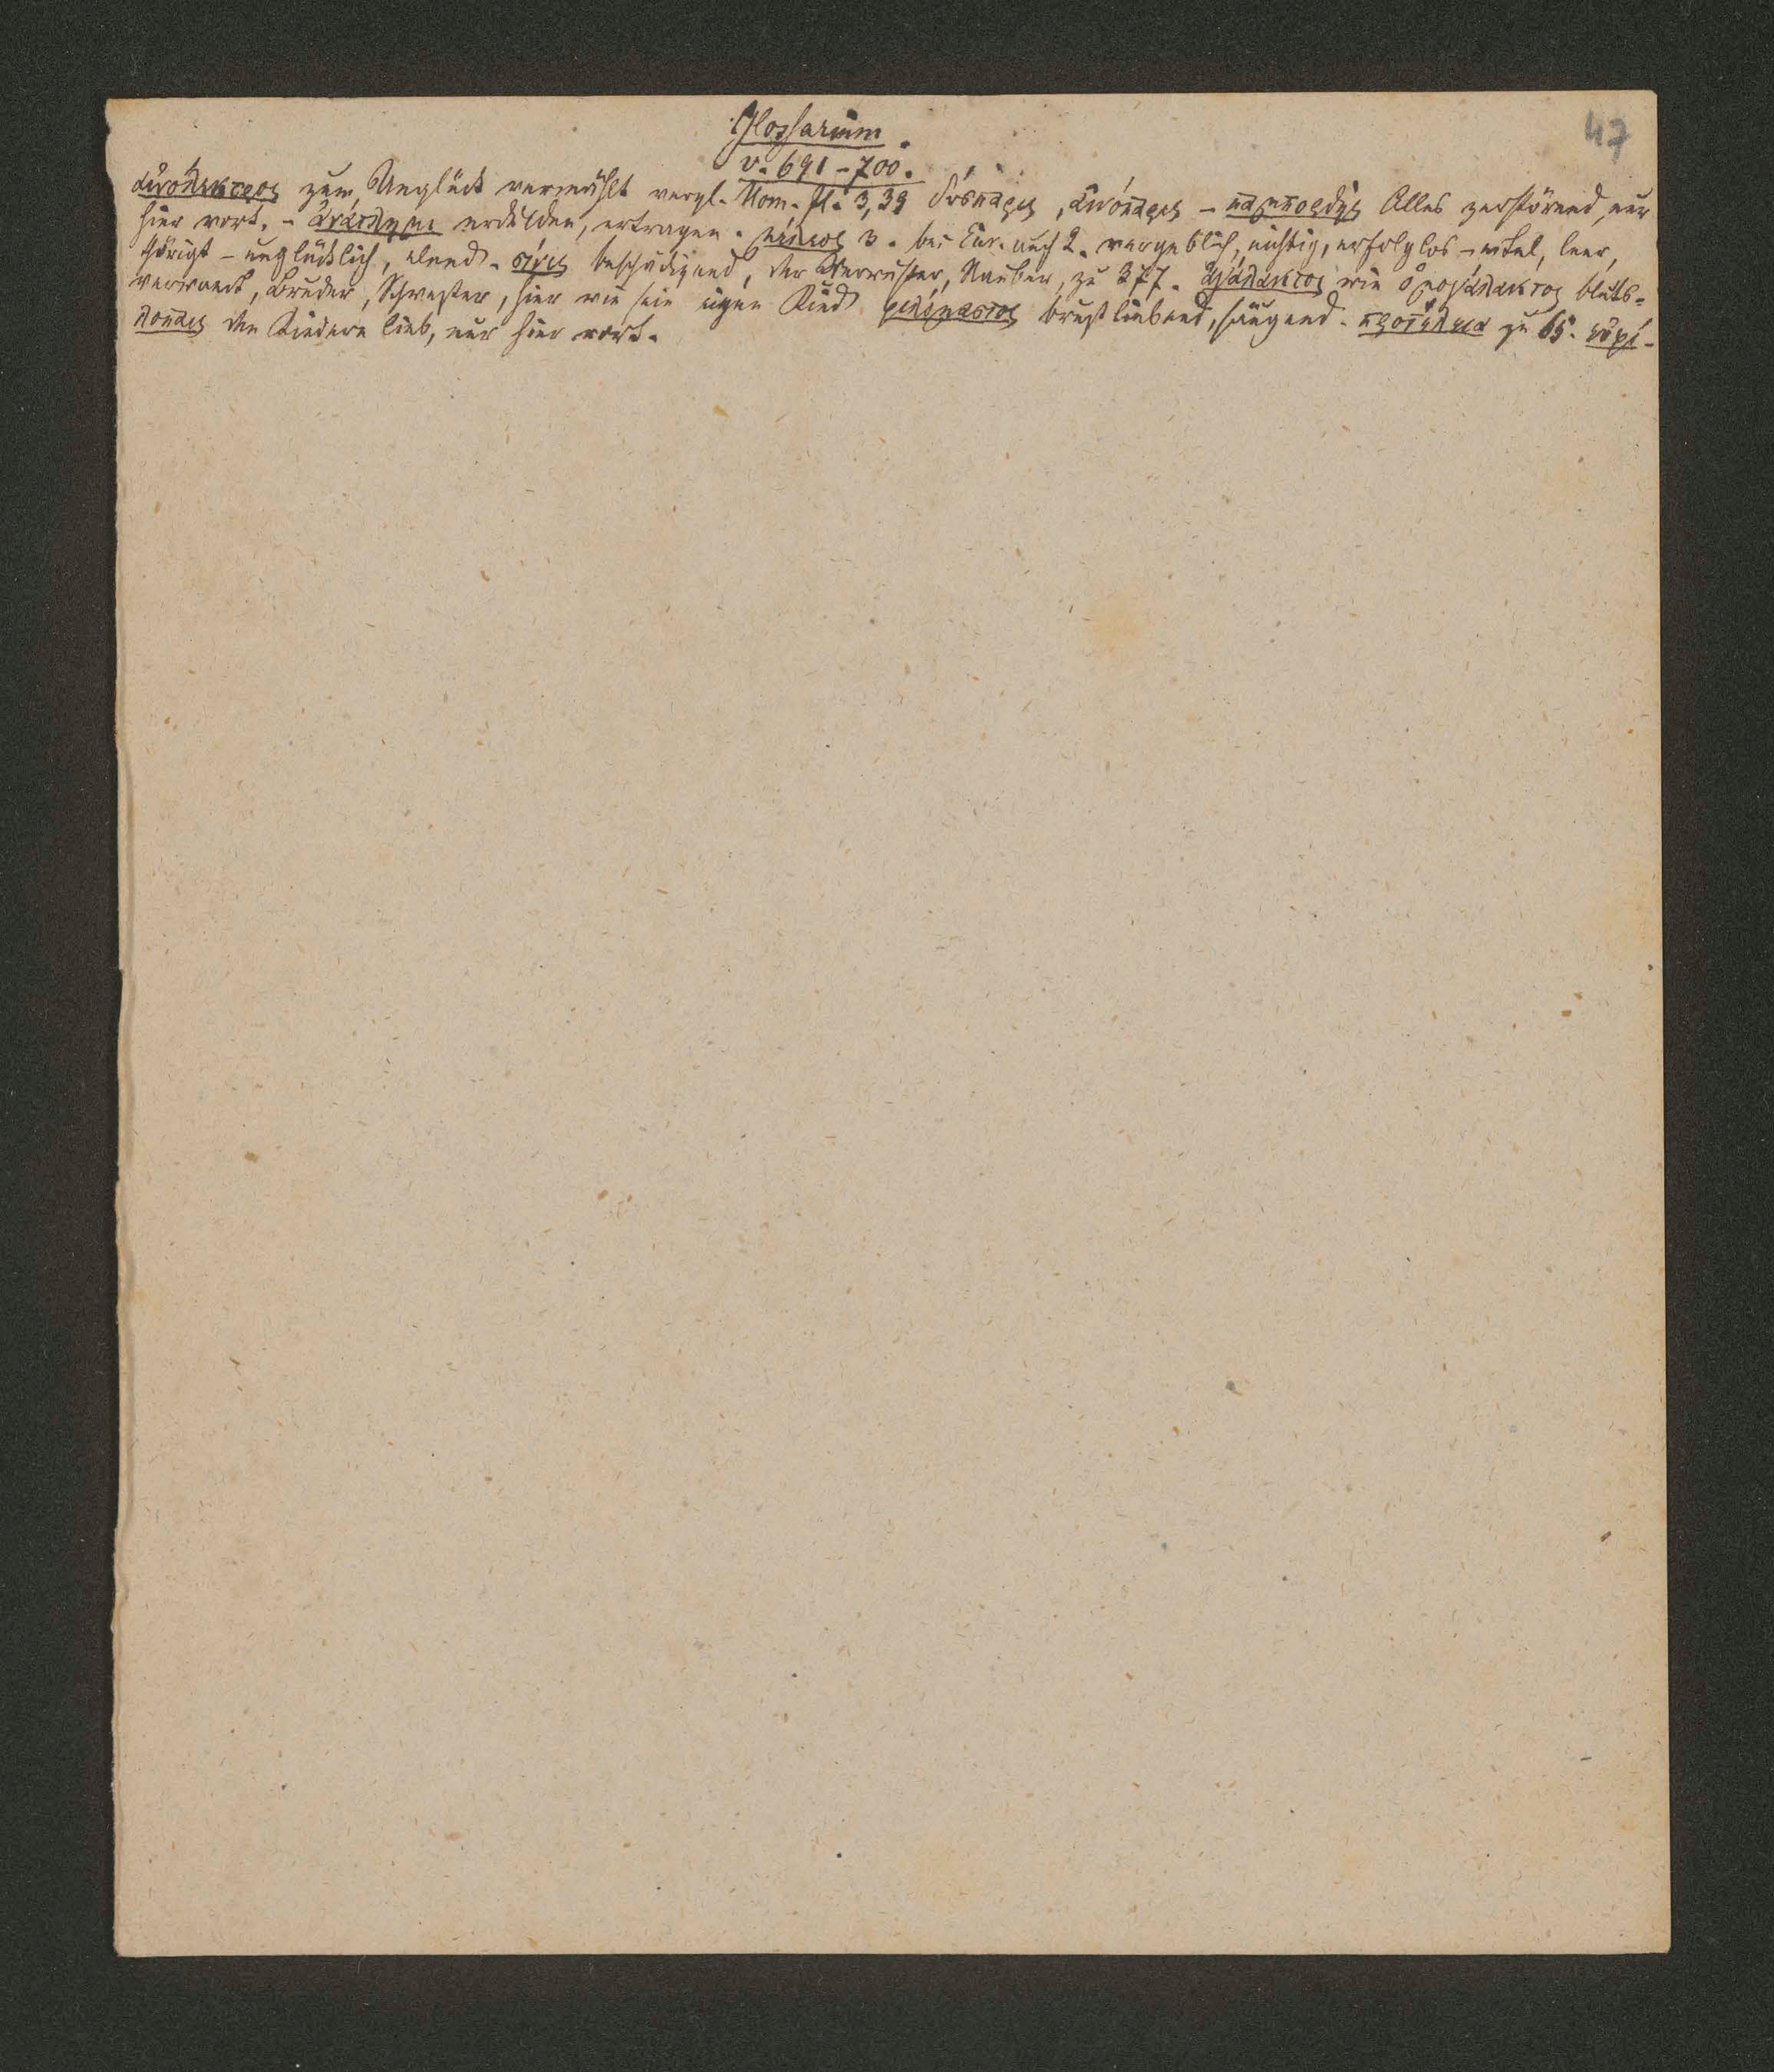 Glossarium.
47
v. 691-700.
αἰνόλεκτρος zum Unglück vermählt vergl. Hom. Il. 3, 39 δύσπαρις, αἰνόπαρις - παμπορθής Alles zerstörend, nur
hier vork. - ἀνάτλημι erdulden, ertragen. μέλεος 3. bei Eur. auch 2. vergeblich, nichtig, erfolglos - eitel, leer,
thörigt - unglücklich, elend. σίνις beschädigend, der Verwüster, Räuber, zu 377. ἀγάλακτος wie ὁμογάλακτος bluts-
verwandt, Bruder, Schwester, hier wie sein eigen Kind φιλόμαστος brustliebend, säugend. προτέλεια zu 65. εὐφι-
λόπαις den Kindern lieb, nur hier vork.